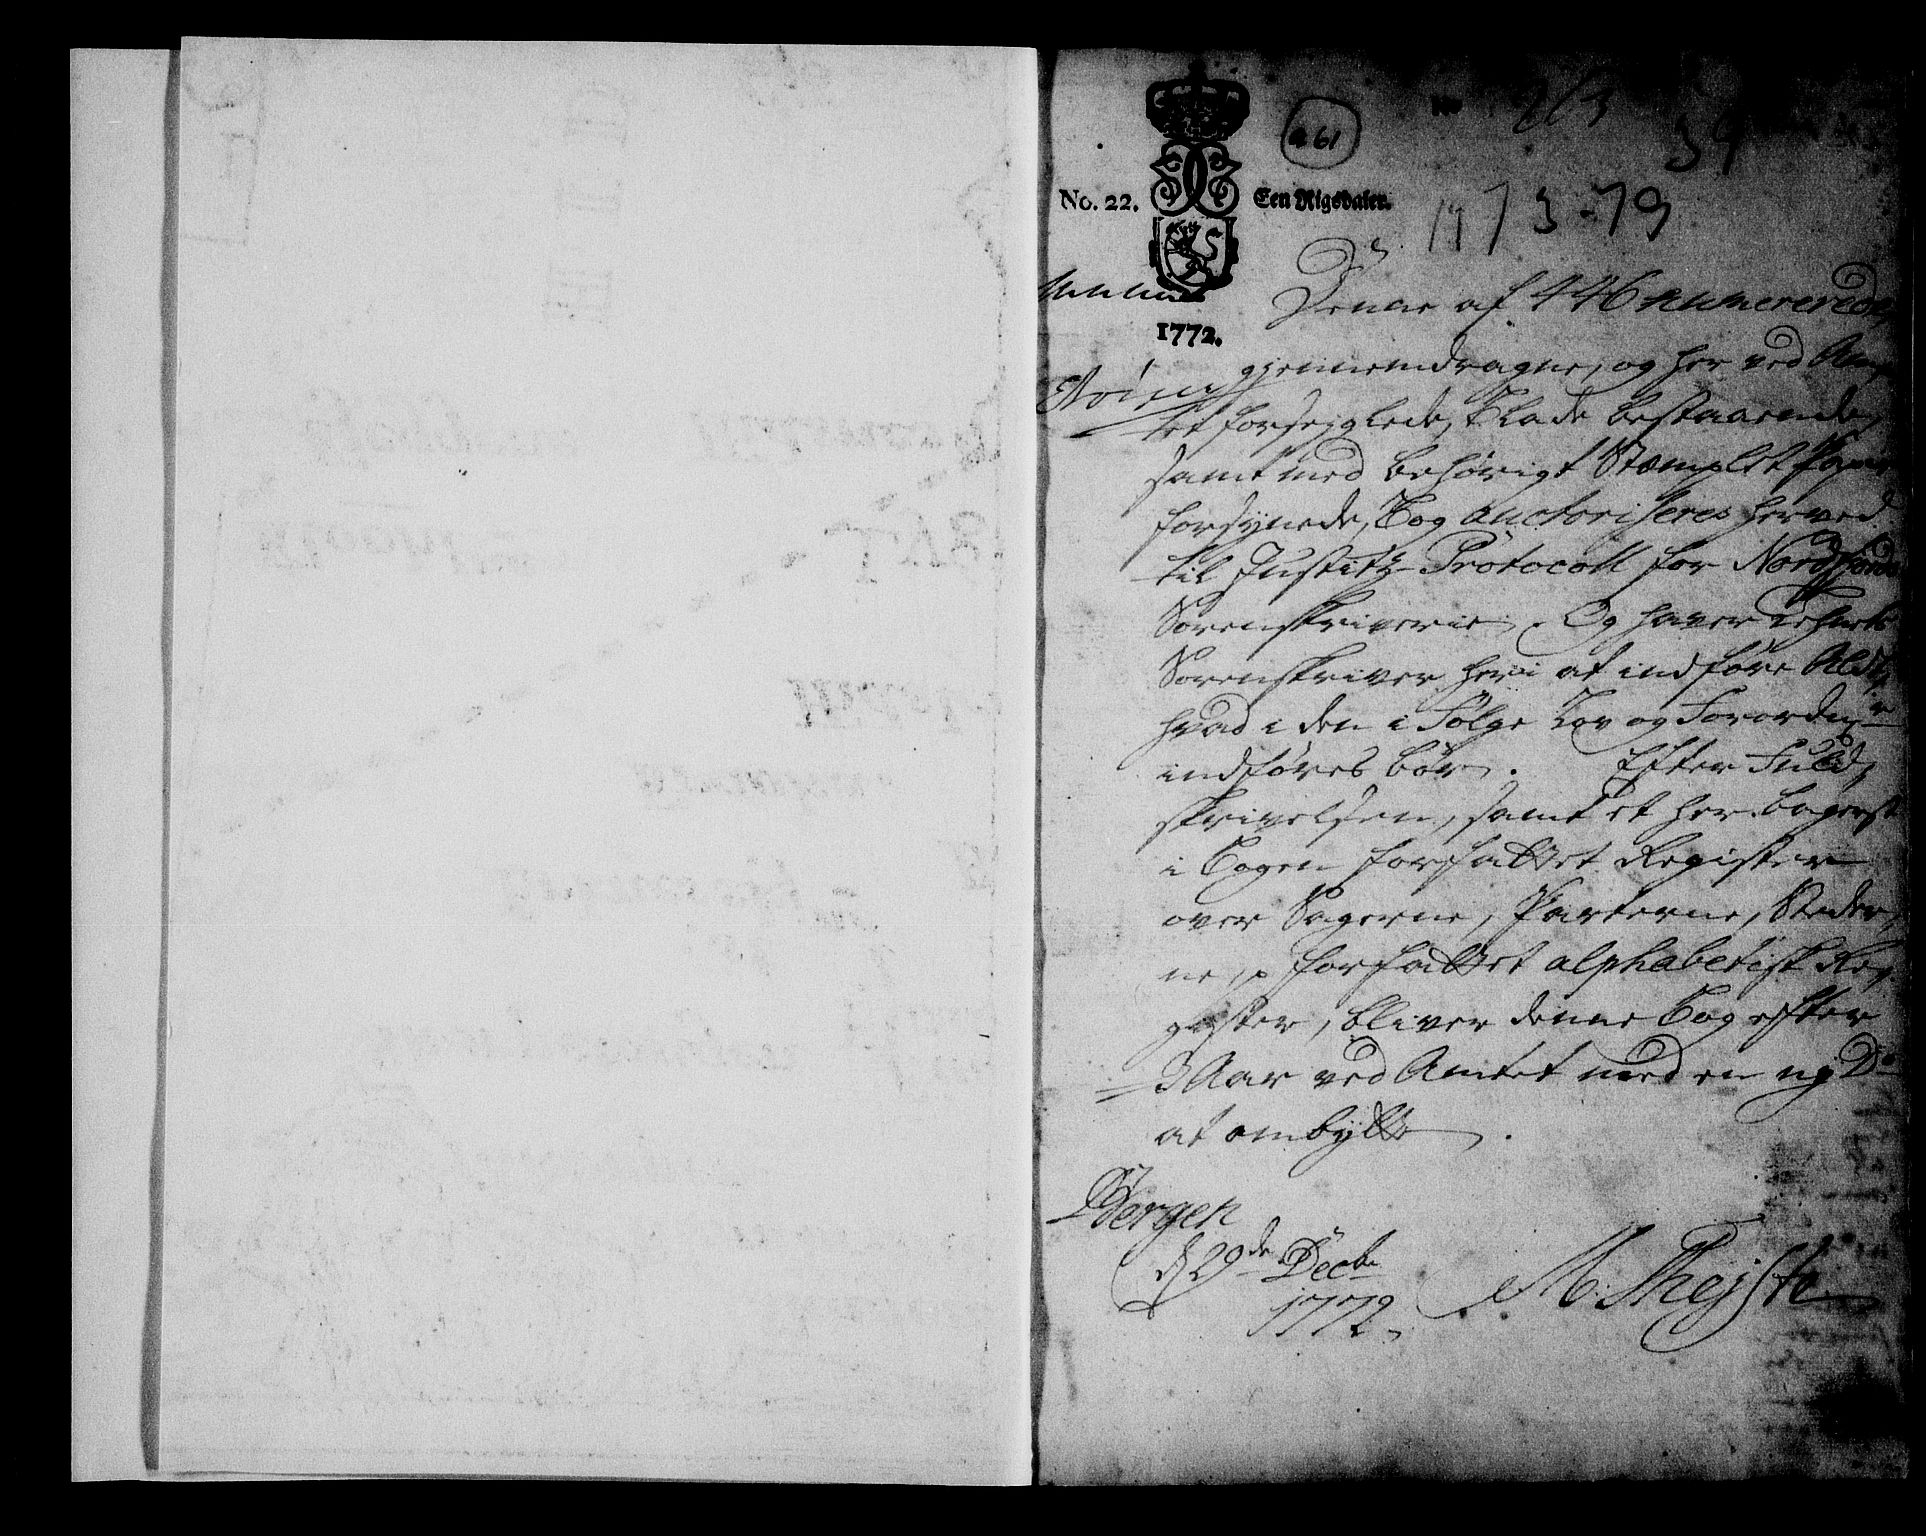 No 213
a 61
39
No. 22. Een Rigsdaler.
1773-79
1772.
Denne af 446 numererede,
gjennemdragne, og her ved Am¬
tet forseiglede, Blade bestaaende,
samt med behørigt Stemplet Papir
forsynede, Bog auctoriseres herved
til Justitz-Protocoll for Nordfiords
Sorenskriverie. Og haver
Sorenskriver heri at indføre Alt
hvad i den i Følge Lov og Forordn:r
indføres bør. Efter Fuld¬
skrivelsen, samt et her bagerst
i Bogen forfattet Register
over Sagerne, Parterne, Steder¬
ne, p forfattet alphabetisk Re¬
gister, bliver denne Bog efter
3 Aar ved Amtet med en ny D:o
at ombytte.
Bergen
d 29de Decbr
1772.